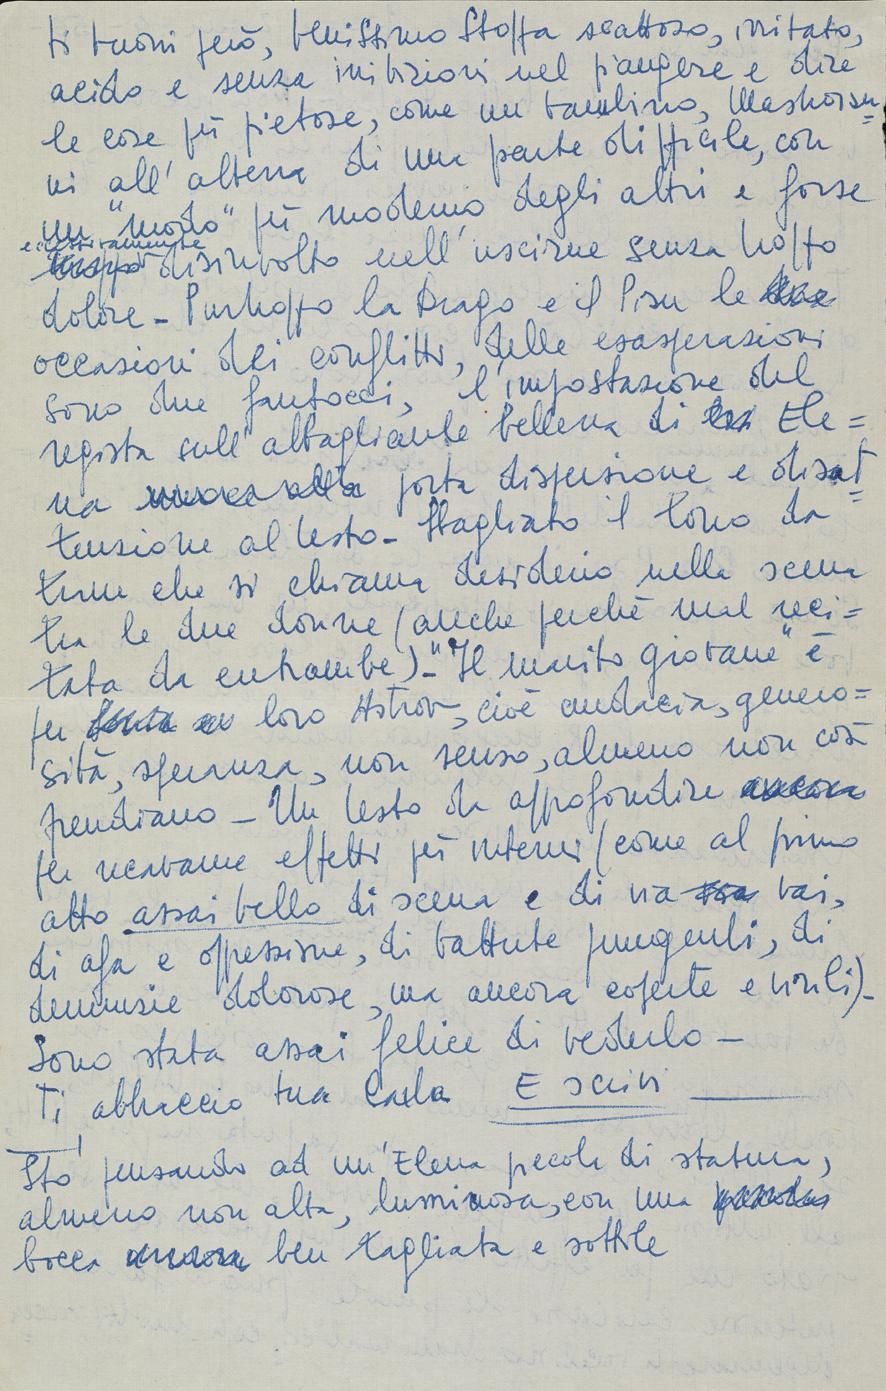 ti buoni però, benissimo Stoppa scattoso, irritato,
acido e senza inibizioni nel piangere e dire
le cose più pietose, come un bambino, Mastroian=
ni all'altezza di una parte difficile, con
un "modo" più moderno degli altri e forse
eccessivamente
disinvolto nell'uscirne senza troppo
dolore - Purtroppo la Drago e il Pisu le
occasioni dei conflitti, delle esasperazioni
sono due fantocci, l'impostazione del
regista sull'abbagliante bellezza di Ele=
na porta dispersione e disat=
tenzione al testo - Sbagliato il tono da
che si chiama desiderio nella scena
tra le due donne (anche perchè mal reci=
tata da entrambe) - "Il marito giovane" è
per loro Astrov, cioè audacia, genero=
sità, speranza, non senso, almeno non così
prendiamo - Un testo da approfondire ancora
per ricavarne effetti più interni (come al primo
atto assai bello di scena e di via vai,
di afa e oppressione, di battute pungenti, di
denunzie dolorose, ma ancora coperte e virili) -
Sono stata assai felice di vederlo -
Ti abbraccio tua Carla E scrivi
Sto pensando ad un'Elena piccola di statura,
almeno non alta, luminosa, con una
bocca ben tagliata e sottile